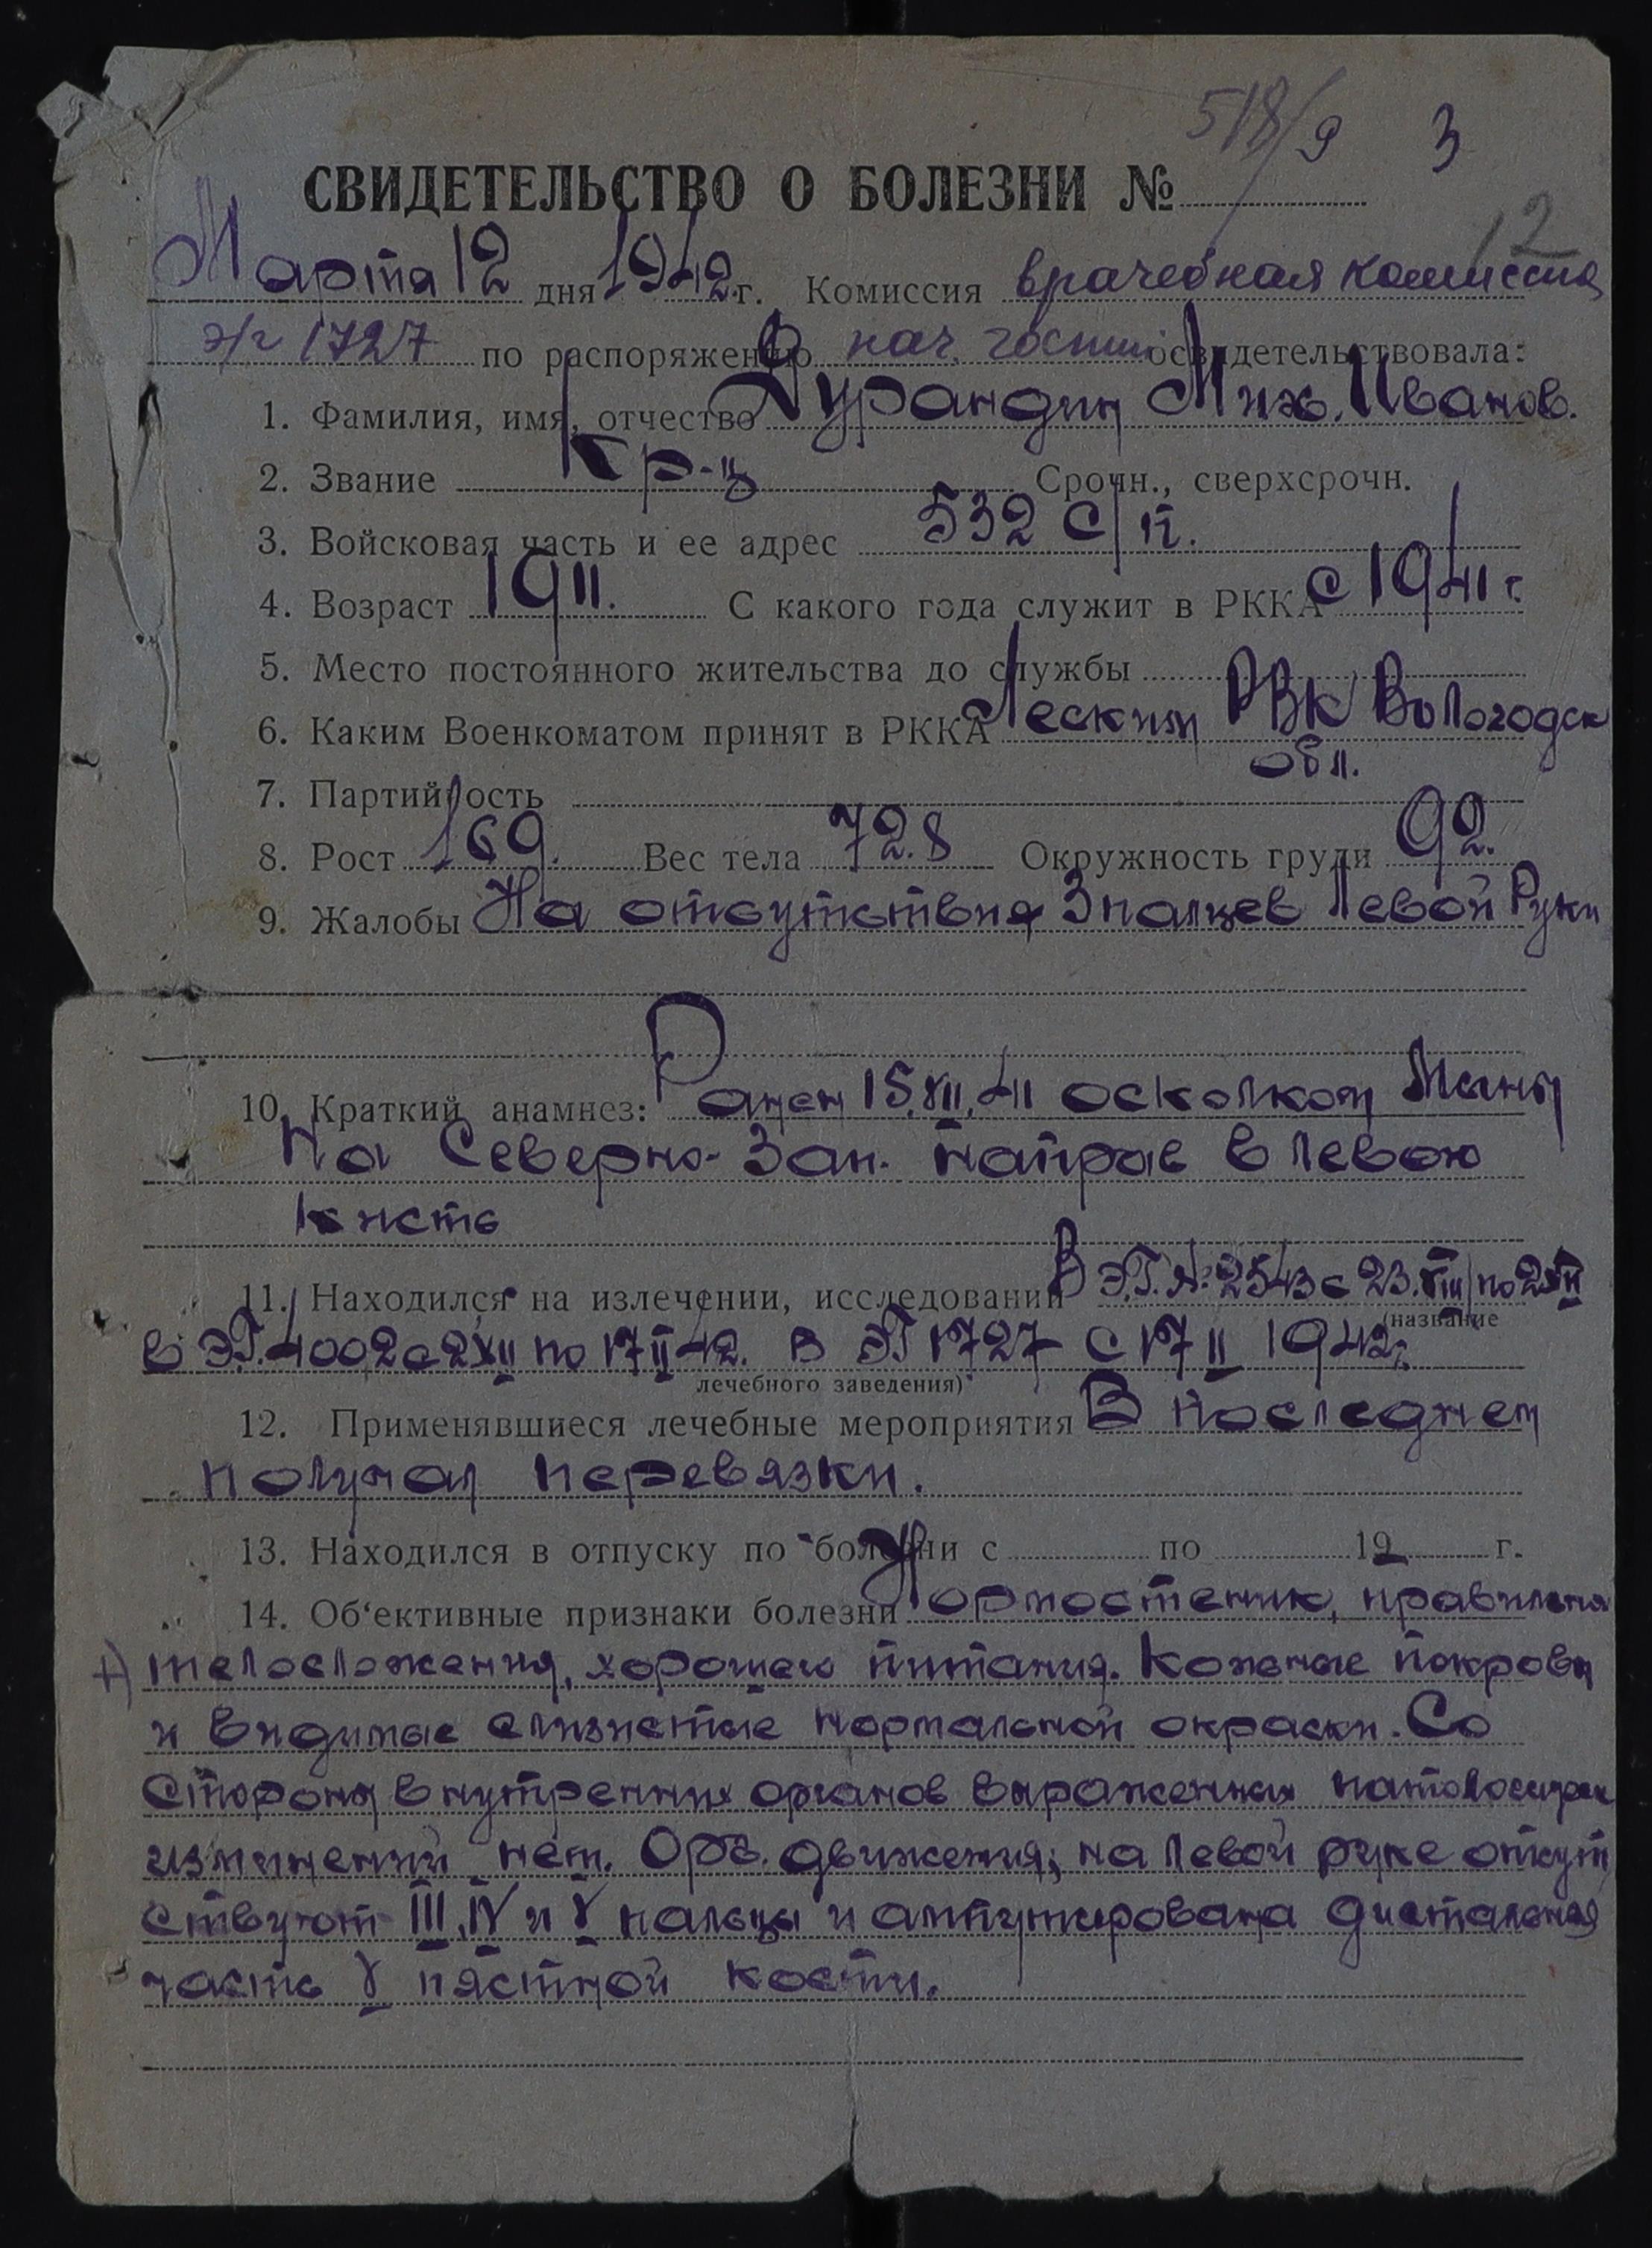 518/9 3
СВИДЕТЕЛЬСТВО О БОЛЕЗНИ №
12
Марта 12 дня 1942 г. Комиссия врачебная комиссия
э/г 1727 по распоряжению нач. госпит освидетельствовала:
1. Фамилия, имя, отчество Дурандин Мих. Иванов.
2. Звание Кр-ц Срочн., сверхсрочн.
3. Войсковая часть и ее адрес 532 с/п.
4. Возраст 1911. С какого года служит в РККА с 1941 г.
5. Место постоянного жительства до службы
6. Каким Военкоматом принят в РККА Леским РВК Вологодск
обл.
7. Партийность
8. Рост 169. Вес тела 72.8 Окружность груди 92.
9. Жалобы На отсутствия 3 палцев Левой Руки
10. Краткий анамнез: Ранен 15.VIII.41 осколком Мины
На Северно-Зап. направ в левою
кисть
11. Находился на излечении, исследовании В Э.Г. № 2543 с 23.VIII по 2XII
(название
в Э.Г. 4002 с 2XII по 17 II 42. В ЭГ 1727 с 17 II 1942 г.
лечебного заведения)
12. Применявшиеся лечебные мероприятия В последнем
получал перевязки.
13. Находился в отпуску по болезни с по 19 г.
14. Об'ективные признаки болезни Нормостеник, правильня
телосложения, хорошего питания. Кожные покровы
и видимые слизистые нормальной окраски. Со
Стороны внутренних органов выраженных
изминений нет. Орг. движения; на левой руке отсут
ствуют III, IV и V пальцы и ампутирована дистальная
часть V пястной кости.